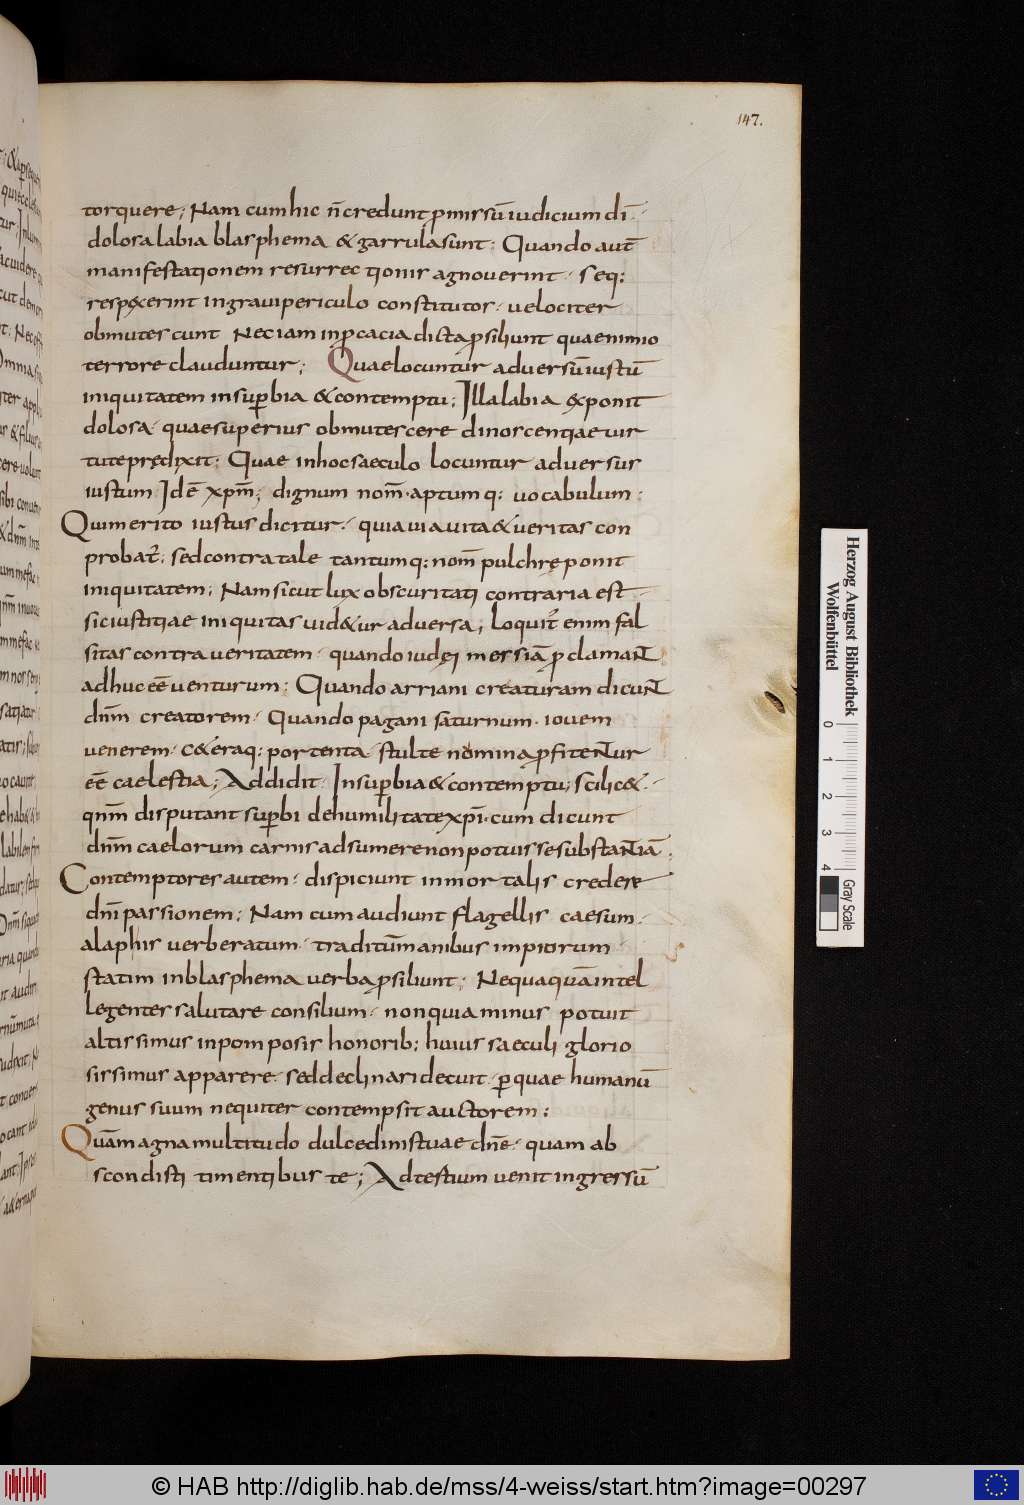 147.
torquere; Nam cum hic n̄ credunt p̱missū iudicium dī·
dolosa labia blasphema & garrula sunt: Quando aut̄
manifestationem resurrectionis agnoverint· seq:
respexerint in gravi periculo constitutos· velociter
obmutescunt Nec iam inp̱cacia dicta p̱siliunt quae nimio
terrore clauduntur; Quae locuntur adversū iustū
iniquitatem in sup̱bia & contemptu; Illa labia exponit
dolosa· quae superius obmutescere dinoscentiae vir
tute prędixit: Quae in hoc saeculo locuntur adversus
iustum Idē xp̄m; dignum nom̄· aptumq: vocabulum:
Qui merito iustus dicitur· quia via vita & veritas con
probat̄; sed contra tale tantumq: nom̄ pulchrę ponit
iniquitatem; Nam sicut lux obscuritati contraria est·
sic iustitiae iniquitas vid&ur adversa; loquit̄ enim fal
sitas contra veritatem· quando iudęi messiā p̱clamant
adhuc eē venturum: Quando arriani creaturam dicunt
dn̄m creatorem· Quando pagani saturnum· iovem
venerem· c&eraq: portenta· stulte nomina p̱fitentur
eē caelestia; Addidit· In sup̱bia & contemptu; scilic&·
qn̄m disputant sup̱bi de humilitate xp̄i· cum dicunt
dn̄m caelorum carnis adsumere non potuisse substantiā;
Contemptores autem· dispiciunt inmortalis credere
dn̄i passionem; Nam cum audiunt flagellis caesum·
alaphis verberatum· traditū manibus impiorum·
statim in blasphema verba p̱siliunt; Nequaquā intel
legentes salutare consilium· non quia minus potuit
altissimus in pom posis honorib: huius saeculi glorio
sissimus apparere· sed declinari decuit· p̱ quae humanū
genus suum nequiter contempsit auctorem:
Quā magna multitudo dulcedinis tuae dn̄e· quam ab
scondisti timentibus te; Ad tertium venit ingressū
Herzog August Bibliothek
Wolfenbüttel
0 1 2 3 4
Gray Scale
© HAB http://diglib.hab.de/mss/4-weiss/start.htm?image=00297